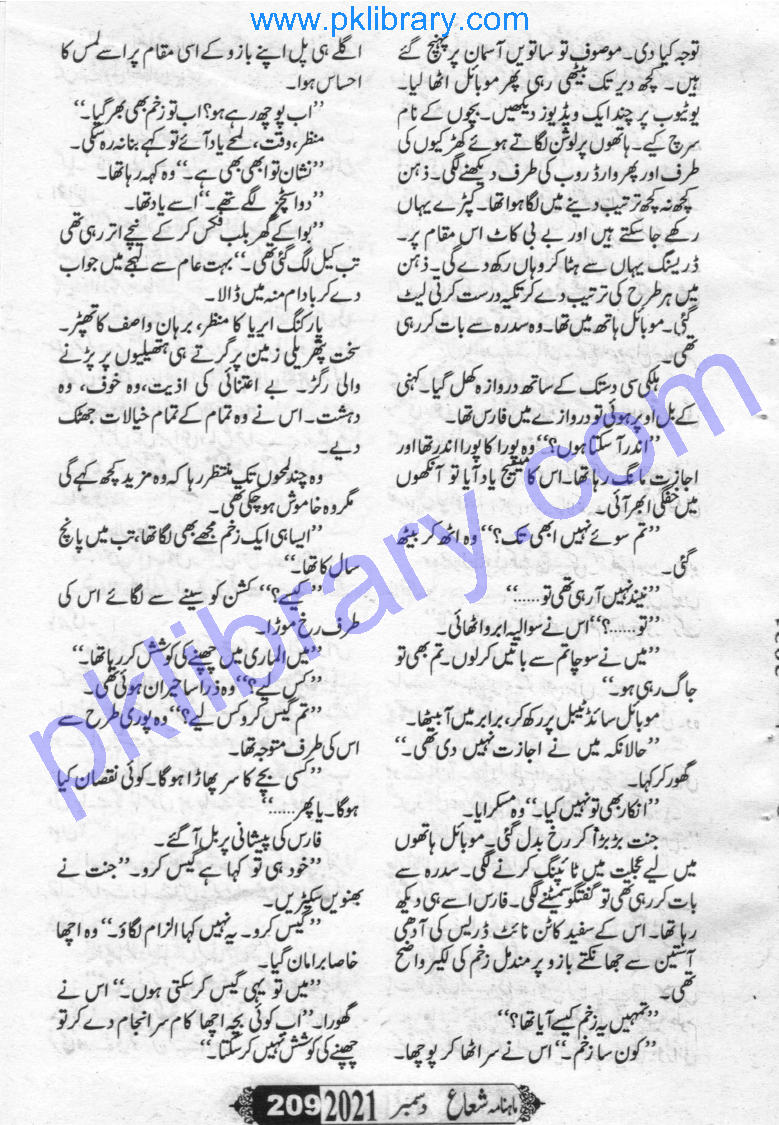 www.pklibrary.com
توجہ کیا دی۔ موصوف تو ساتویں آسمان پر پہنچ گئے
ہیں۔ کچھ دیر تک بیٹھی رہی پھر موبائل اٹھا لیا۔
یوٹیوب پر چند ایک ویڈیوز دیکھیں۔ بچوں کے نام
سرچ کیے۔ ہاتھوں پر لوشن لگاتے ہوئے کھڑکیوں کی
طرف اور پھر وارڈروب کی طرف دیکھنے لگی۔ ذہن
کچھ نہ کچھ ترتیب دینے میں لگا ہوا تھا۔ کپڑے یہاں
رکھے جا سکتے ہیں اور بے بی کاٹ اس مقام پر۔
ڈریسنگ یہاں سے ہٹا کر وہاں رکھ دے گی۔ ذہن
میں ہر طرح کی ترتیب دے کر تکیہ درست کرتی لیٹ
گئی۔ موبائل ہاتھ میں تھا۔ وہ سدرہ سے بات کر رہی
تھی۔
ہلکی سی دستک کے ساتھ دروازہ کھل گیا۔ کہنی
کے بل اوپر ہوئی تو دروازے میں فارس تھا۔
’’اندر آ سکتا ہوں؟‘‘ وہ پورا کا پورا اندر تھا اور
اجازت مانگ رہا تھا۔ اس کا میسج یاد آیا تو آنکھوں
میں خفگی ابھر آئی۔
’’تم سوئے نہیں ابھی تک؟‘‘ وہ اٹھ کر بیٹھ
گئی۔
’’نیند نہیں آ رہی تھی تو......‘‘
’’تو......؟‘‘ اس نے سوالیہ ابرو اٹھائی۔
’’میں نے سوچا تم سے باتیں کر لوں۔ تم بھی تو
جاگ رہی ہو۔‘‘
موبائل سائڈ ٹیبل پر رکھ کر، برابر میں آ بیٹھا۔
’’حالانکہ میں نے اجازت نہیں دی تھی۔‘‘
گھور کر کہا۔
’’انکار بھی تو نہیں کیا۔‘‘ وہ مسکرایا۔
جنت بڑبڑا کر رخ بدل گئی۔ موبائل ہاتھوں
میں لیے عجلت میں ٹائپنگ کرنے لگی۔ سدرہ سے
بات کر رہی تھی تو گفتگو سمیٹنے لگی۔ فارس اسے ہی دیکھ
رہا تھا۔ اس کے سفید کاٹن نائٹ ڈریس کی آدھی
آستین سے جھانکتے بازو پر مندمل زخم کی لکیر واضح
تھی۔
’’تمہیں یہ زخم کیسے آیا تھا؟‘‘
’’کون سا زخم۔‘‘ اس نے سر اٹھا کر پوچھا۔
اگلے ہی پل اپنے بازو کے اسی مقام پر اسے لمس کا
احساس ہوا۔
’’اب پوچھ رہے ہو؟ اب تو زخم بھی بھر گیا۔‘‘
منظر، وقت، لمحے یاد آئے تو کہے بنا نہ رہ سکی۔
’’نشان تو ابھی بھی ہے۔‘‘ وہ کہہ رہا تھا۔
’’دو اسٹچز لگے تھے۔‘‘ اسے یاد تھا۔
’’بوا کے گھر بلب فکس کر کے نیچے اتر رہی تھی
تب کیل لگ گئی تھی۔‘‘ بہت عام سے لہجے میں جواب
دے کر بادام منہ میں ڈالا۔
پارکنگ ایریا کا منظر، برہان واصف کا تھپڑ۔
سخت پتھریلی زمین پر گرتے ہی ہتھیلیوں پر پڑنے
والی رگڑ۔ بے اعتنائی کی اذیت، وہ خوف، وہ
دہشت۔ اس نے وہ تمام کے تمام خیالات جھٹک
دیے۔
وہ چند لمحوں تک منتظر رہا کہ وہ مزید کچھ کہے گی
مگر وہ خاموش ہو چکی تھی۔
’’ایسا ہی ایک زخم مجھے بھی لگا تھا، تب میں پانچ
سال کا تھا۔‘‘
’’کیسے؟‘‘ کشن کو سینے سے لگائے اس کی
طرف رخ موڑا۔
’’میں الماری میں چھپنے کی کوشش کر رہا تھا۔‘‘
’’کس لیے؟‘‘ وہ ذرا سا حیران ہوئی تھی۔
’’تم گیس کرو کس لیے؟‘‘ وہ پوری طرح سے
اس کی طرف متوجہ تھا۔
’’کسی بچے کا سر پھاڑا ہوگا۔ کوئی نقصان کیا
ہوگا۔ یا پھر......‘‘
فارس کی پیشانی پر بل آ گئے۔
’’خود ہی تو کہا ہے گیس کرو۔‘‘ جنت نے
بھنویں سکیڑیں۔
’’گیس کرو۔ یہ نہیں کہا الزام لگاؤ۔‘‘ وہ اچھا
خاصا برا مان گیا۔
’’میں تو یہی گیس کر سکتی ہوں۔‘‘ اس نے
گھورا۔ ’’اب کوئی بچہ اچھا کام سرانجام دے کر تو
چھپنے کی کوشش نہیں کر سکتا۔‘‘
ماہنامہ شعاع دسمبر 2021 209
pklibrary.com